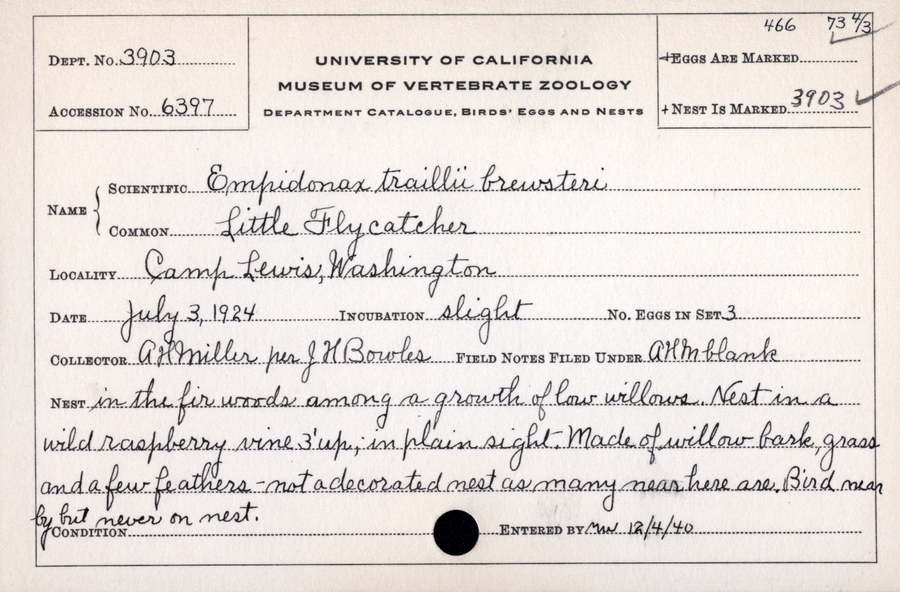 466 73 4/3
Dept. No. 3903
UNIVERSITY OF CALIFORNIA
MUSEUM OF VERTEBRATE ZOOLOGY
Department Catalogue, Birds' Eggs and Nests
Accession No. 6397
+Eggs Are Marked
+Nest Is Marked 3903
Name
Scientific Empidonax traillii brewsteri
Common Little Flycatcher
Locality Camp Lewis, Washington
Date July 3, 1924 Incubation slight No. Eggs in Set 3
Collector AHMiller per JHBowles Field Notes Filed Under AHM blank
Nest in the fir woods among a growth of low willows. Nest in a
wild raspberry vine 3' up, in plain sight. Made of willow bark, grass
and a few feathers - not a decorated nest as many near here are. Bird near
by but never on nest.
Condition Entered by 12/4/40